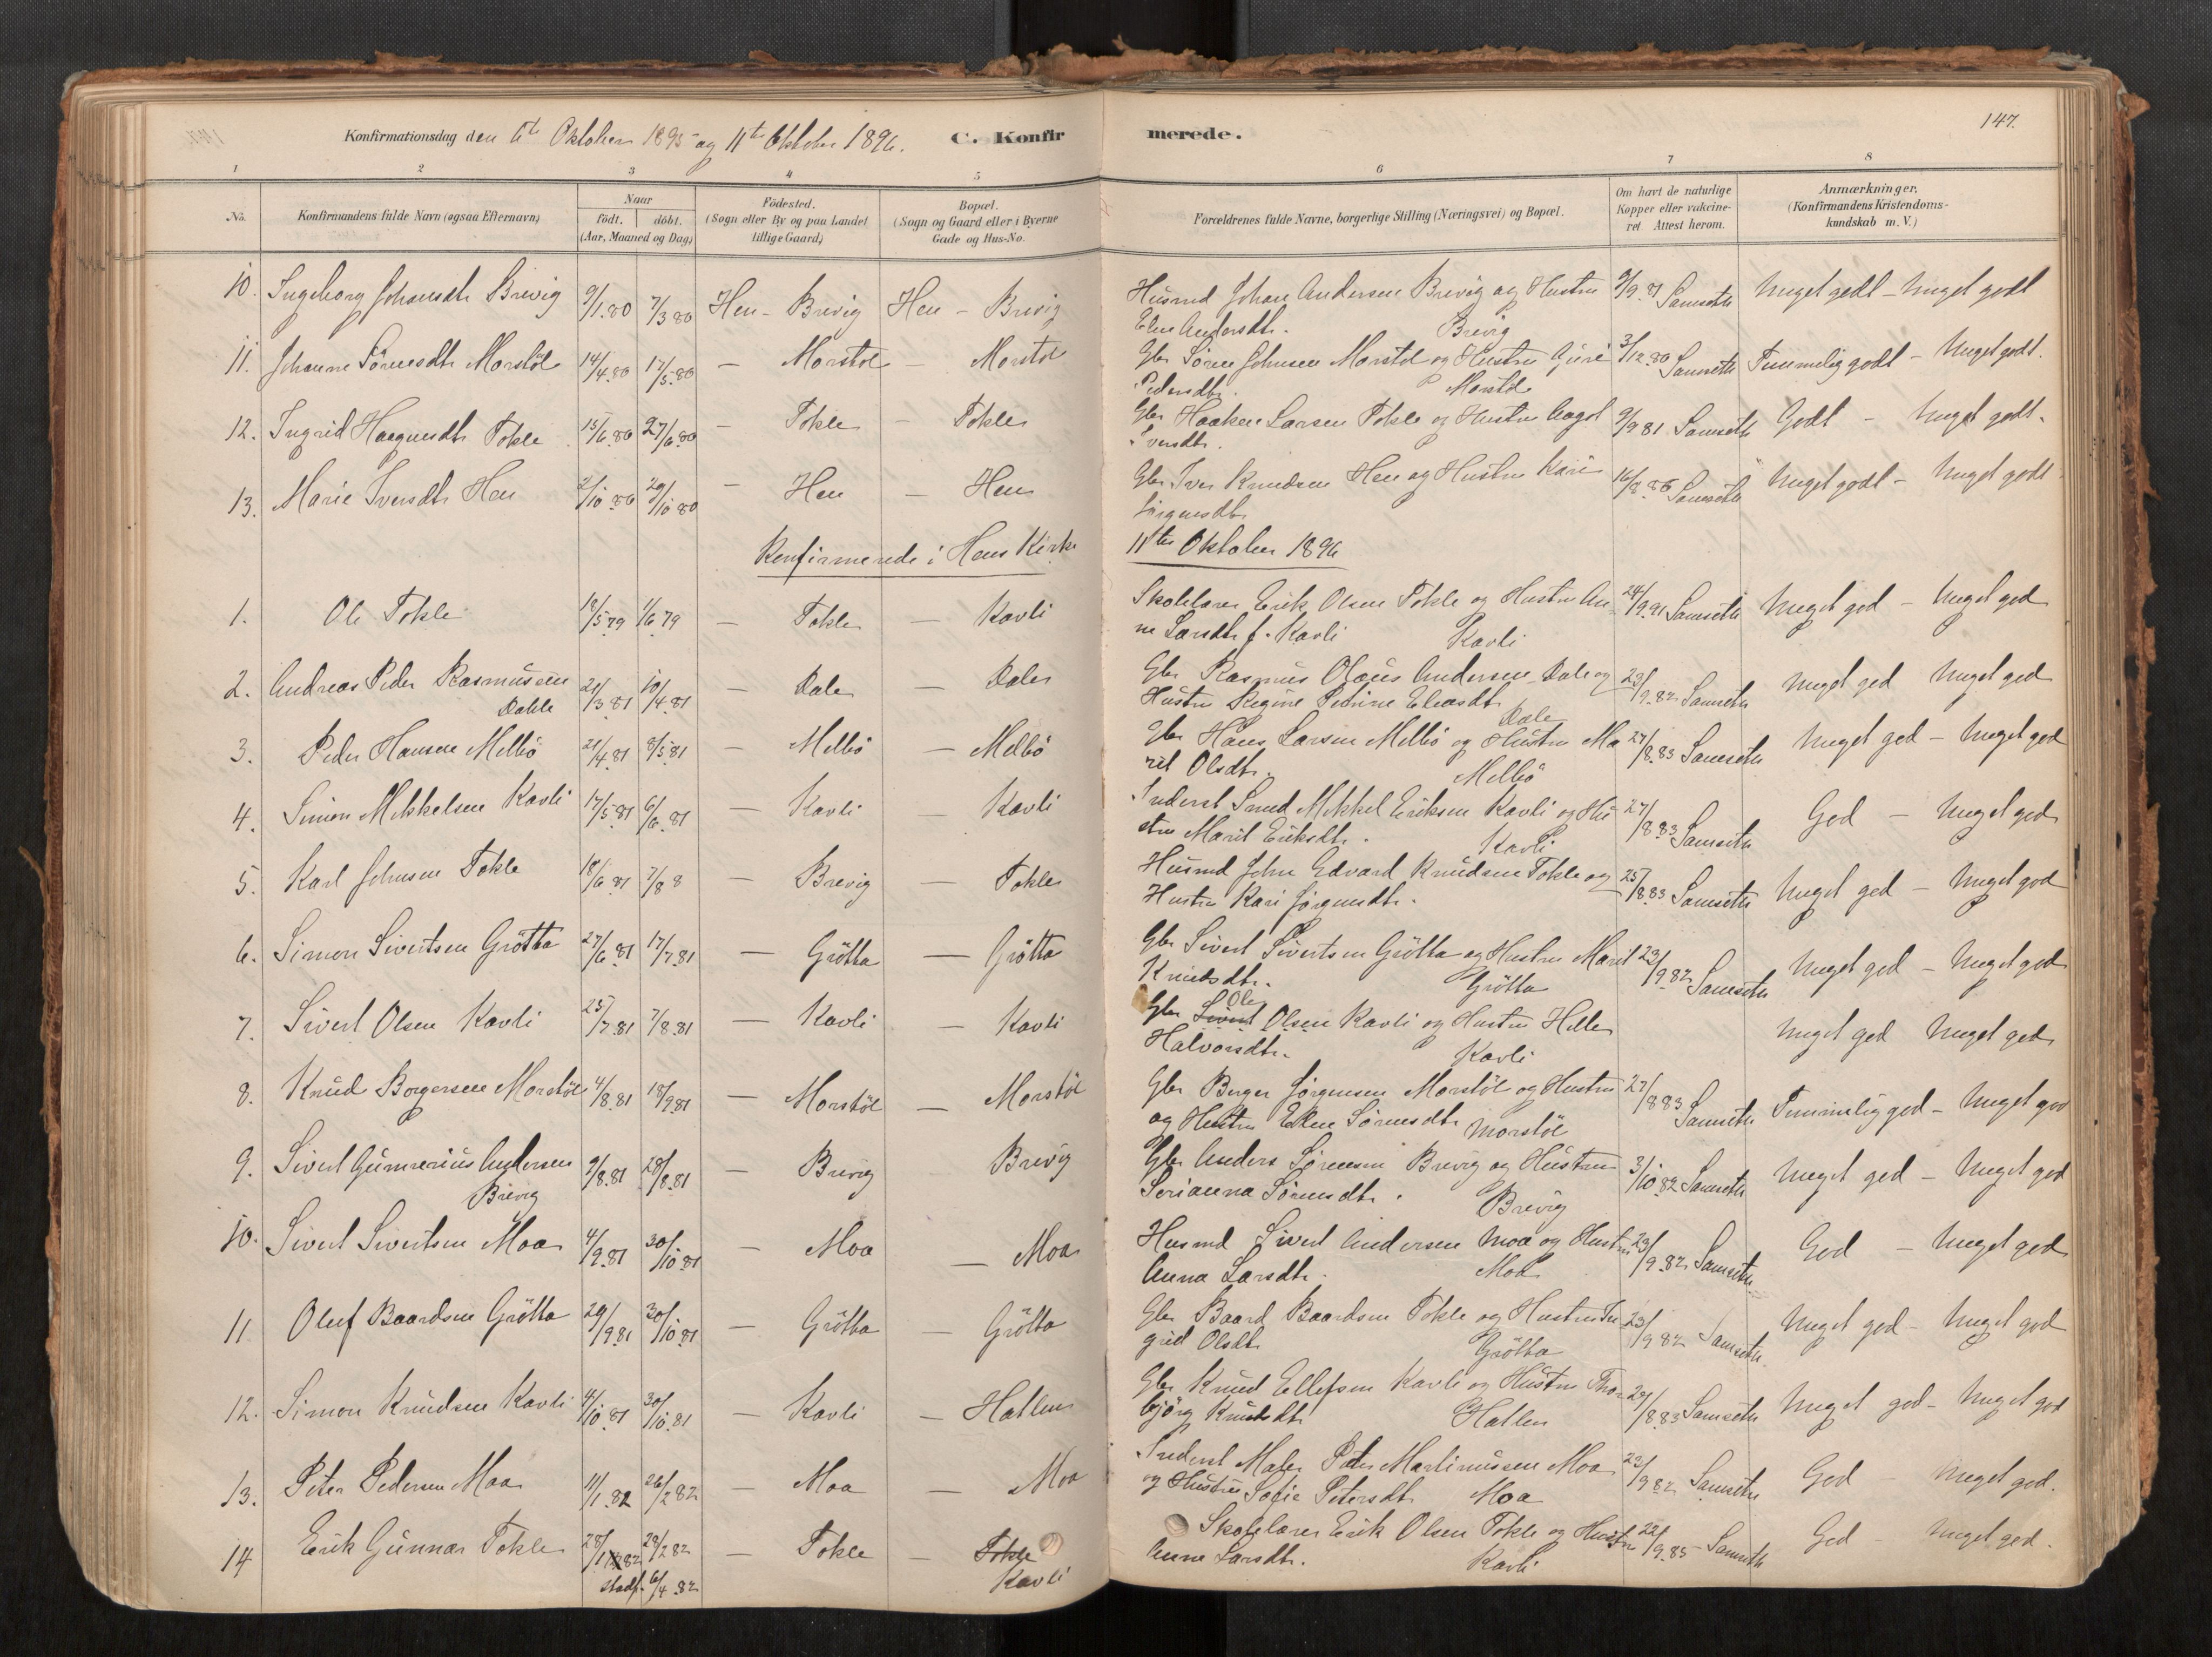 147.
Konfirmationsdag den 6te Oktober 1895 og 11te Oktober 1896. C. Konfirmerede.
1 2 3 4 5 6 7 8
No. Konfirmandens fulde Navn (ogsaa Efternavn) Naar født. døbt. (Aar, Maaned og Dag) Fødested. (Sogn eller By og paa Landet tillige Gaard) Bopæl. (Sogn og Gaard eller i Byerne Gade og Hus-No. Forældrenes fulde Navne, borgerlige Stilling (Næringsvei) og Bopæl. Om havt de naturlige Kopper eller vakcineret Attest herom. Anmærkninger. (Konfirmandens Kristendomskundskab m. V.)
10. Ingeborg Johansdtr Brevig 9/1.80 7/3 80 Hen - Brevig Hen - Brevig Husmd Johan Andersen Brevig og Hustru 9/9.81 Samseth Meget godt - Meget godt
Elen Andersdtr. Brevig
11. Johanne Sørensdtr Morstøl 14/4.80 17/5.80 — Morstøl — Morstøl Gbr Søren Johnsen Morstøl og Hustru Guri 3/12.80 Samseth Temmelig godt - Meget godt.
Pedersdtr. Morstøl
12. Ingrid Haagensdtr Tokle 15/6.80 27/6.80 — Tokle — Tokle Gbr Haaken Larsen Tokle og Hustru Aagot 9/9 81 Samseth Godt - Meget godt.
Iversdtr.
13. Marie Iversdtr Hen 2/10 80 29/10 80 — Hen — Hen Gbr Iver Knudsen Hen og Hustru Kari 16/8.86 Samseth Meget godt - Meget godt
Jørgensdtr
Konfirmerede i Hens Kirke 11te Oktober 1896
1. Ole Tokle 18/5 79 1/6 79 — Tokle — Kavli Skolelærer Erik Olsen Tokle og Hustru An- 24/9.91 Samseth Meget god - Meget god
ne Larsdtr f. Kavli Kavli
2. Andreas Peder Rasmussen 21/3 81 10/4 81 — Dale — Dale Gbr Rasmus Olaus Andersen Dale og 23/9.82 Samseth Meget god Meget god
Dahle Hustru Regine Petrine Eliasdtr Dale
3. Peder Hansen Melbø 21/4.81 8/5.81 — Melbø — Melbø Gbr Hans Larsen Melbø og Hustru Ma 27/8.83 Samseth Meget god - Meget god
rit Olsdtr. Melbø
4. Simon Mikkelsen Kavli 17/5.81 6/6.81 — Kavli — Kavli Inderst Smed Mikkel Eriksen Kavli og Hu 27/8 83 Samseth God - Meget god
stru Marit Eriksdtr. Kavli
5. Karl Johnsen Tokle 18/6 81 7/8 8 — Brevig — Tokle Husmd John Edvard Knudsen Tokle og 25/8.83 Samseth Meget god - Meget god
Hustru Kari Jørgensdtr.
6. Simon Sivertsen Grøtta 27/6 81 17/7.81 — Grøtta — Grøtta Gbr Sivert Sivertsen Grøtta og Hustru Marit 23/9.82 Samseth Meget god - Meget god
Knudsdtr. Grøtta
7. Sivert Olsen Kavli 25/7.81 7/8.81 — Kavli — Kavli Gbr Sivert Ole Olsen Kavli og Hustru Helle Meget god Meget god
Halvorsdtr. Kavli
8. Knud Borgersen Morstøl 4/8.81 18/9.81 — Morstøl — Morstøl Gbr Borger Jørgensen Morstøl og Hustru 27/8 83 Samseth Temmelig god - Meget god
og Hustru Elen Sørensdtr Morstøl
9. Sivert Gunnerius Andersen 9/8.81 28/8.81 — Brevig Brevig Gbr Anders Sørensen Brevig og Hustru 3/10.82 Samseth Meget god - Meget god
Brevig Serianna Sørensdtr. Brevig
10. Sivert Sivertsen Moa 4/9.81 30/10 81 — Moa — Moa Husmd Sivert Andersen Moa og Hustru 23/9.82 Samseth God - Meget god
Anna Larsdtr. Moa
11 Oluf Baardsen Grøtta 29/9 81 30/10 81 — Grøtta — Grøtta Gbr Baard Baardsen Tokle og Hustru In 23/9 82 Samseth Meget god - Meget god
grid Olsdtr Grøtta
12. Simon Knudsen Kavli 4/10.81 30/10.81 — Kavli — Hatlen Gbr Knud Ellefsen Kavli og Hustru Thor 27/8 83 Samseth Meget god - Meget god
bjørg Knudsdtr Hatlen
13. Peter Pedersen Moa 11/1.82 26/2 82 — Moa — Moa Inderst Maler Peter Martinussen Moa 23/9 82 Samseth God Meget god.
og Hustru Sofie Petersdtr Moa
14 Erik Gunnar Tokle 28/1 82 28/2 82 — Tokle — Tokle Skolelærer Erik Olsen Tokle og Hustru 22/9.85 - Samseth God - Meget god.
stadf. 6/4 82 Kavli Anne Larsdtr. Kavli